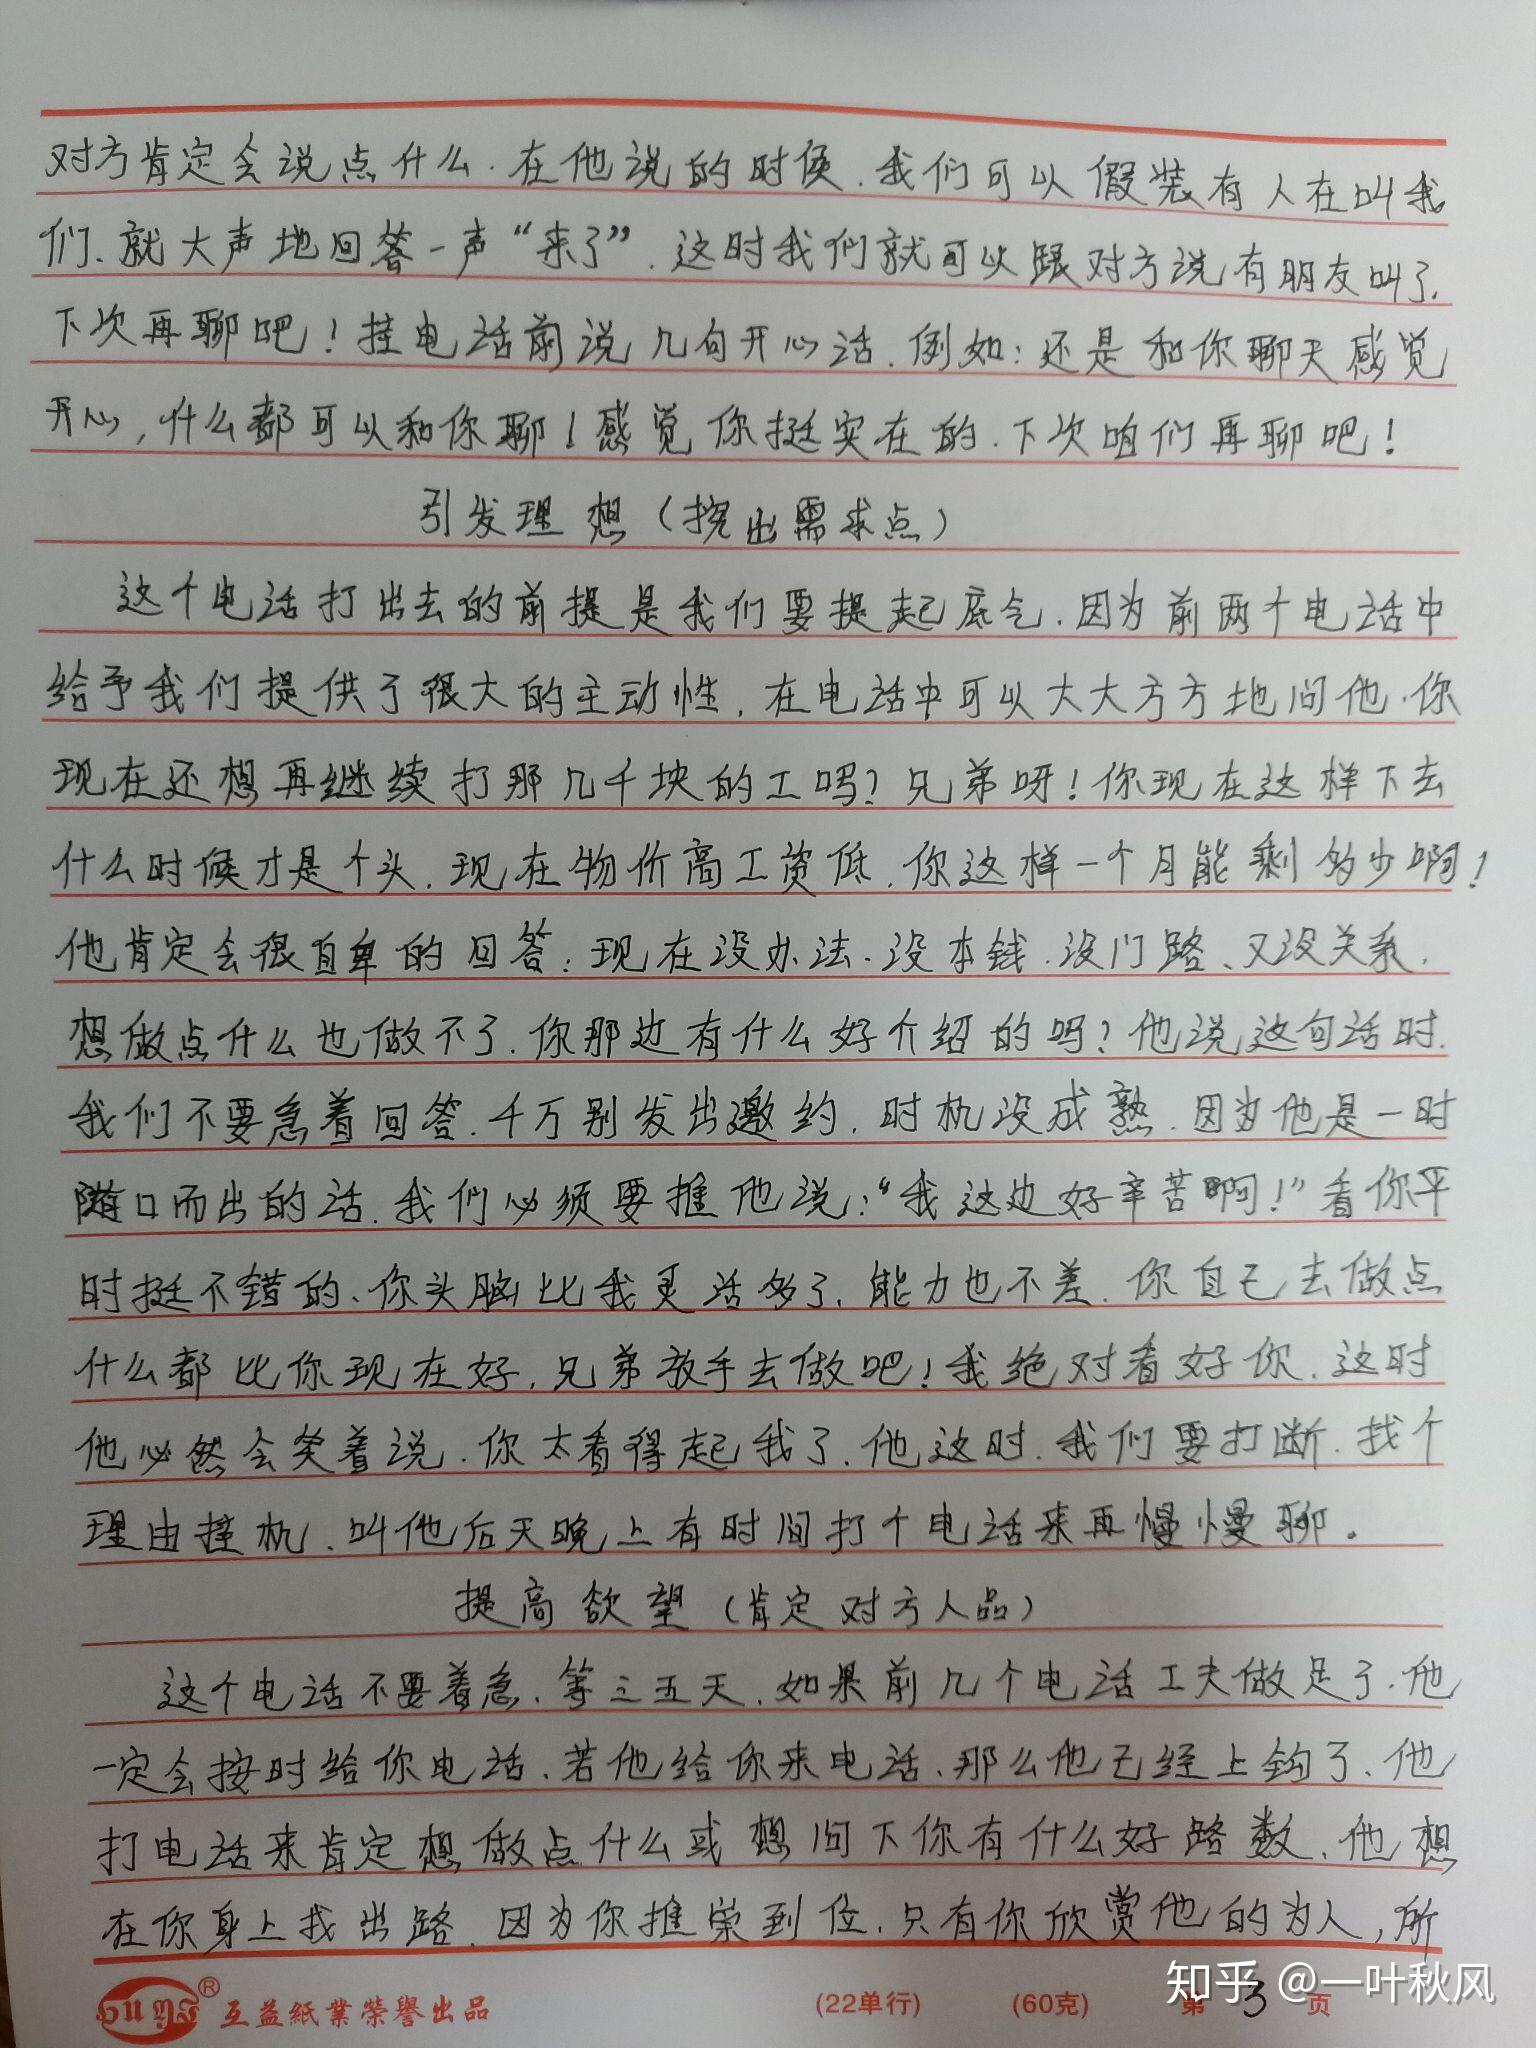 对方肯定会说点什么.在他说的时候.我们可以假装有人在叫我
们、就大声地回答一声“来了”.这时我们就可以跟对方说有朋友叫了.
下次再聊吧！挂电话前说几句开心话.例如：还是和你聊天感觉
开心，什么都可以和你聊！感觉你挺实在的.下次咱们再聊吧！
引发理想（挖出需求点）
这个电话打出去的前提是我们要提起底气.因为前两个电话中
给予我们提供了很大的主动性.在电话中可以大大方方地问他.你
现在还想再继续打那几千块的工吗？兄弟呀！你现在这样下去
什么时候才是个头.现在物价高工资低.你这样一个月能剩多少啊！
他肯定会很自卑的回答：现在没办法.没本钱.没门路、又没关系.
想做点什么也做不了.你那边有什么好介绍的吗？他说这句话时.
我们不要急着回答.千万别发出邀约.时机没成熟.因为他是一时
随口而出的话.我们必须要推他说：“我这边好辛苦啊！”看你平
时挺不错的、你头脑比我灵活多了.能力也不差.你自己去做点
什么都比你现在好.兄弟放手去做吧！我绝对看好你.这时
他必然会笑着说.你太看得起我了.他这时.我们要打断.找个
理由挂机.叫他后天晚上有时间打个电话来再慢慢聊。
提高欲望（肯定对方人品）
这个电话不要着急、等三五天.如果前几个电话工夫做足了.他
一定会按时给你电话.若他给你来电话、那么他已经上钩了.他
打电话来肯定想做点什么或想问下你有什么好路数、他想
在你身上找出路.因为你推崇到位.只有你欣赏他的为人，所
互益紙業榮譽出品 (22单行) (60克) 第 3 页
知乎 @一叶秋风